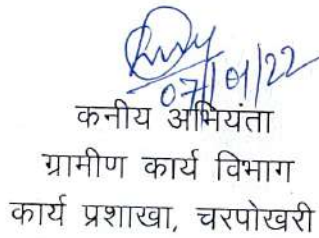 07/01/22
कनीय अभियंता
ग्रामीण कार्य विभाग
कार्य प्रशाखा, चरपोखरी